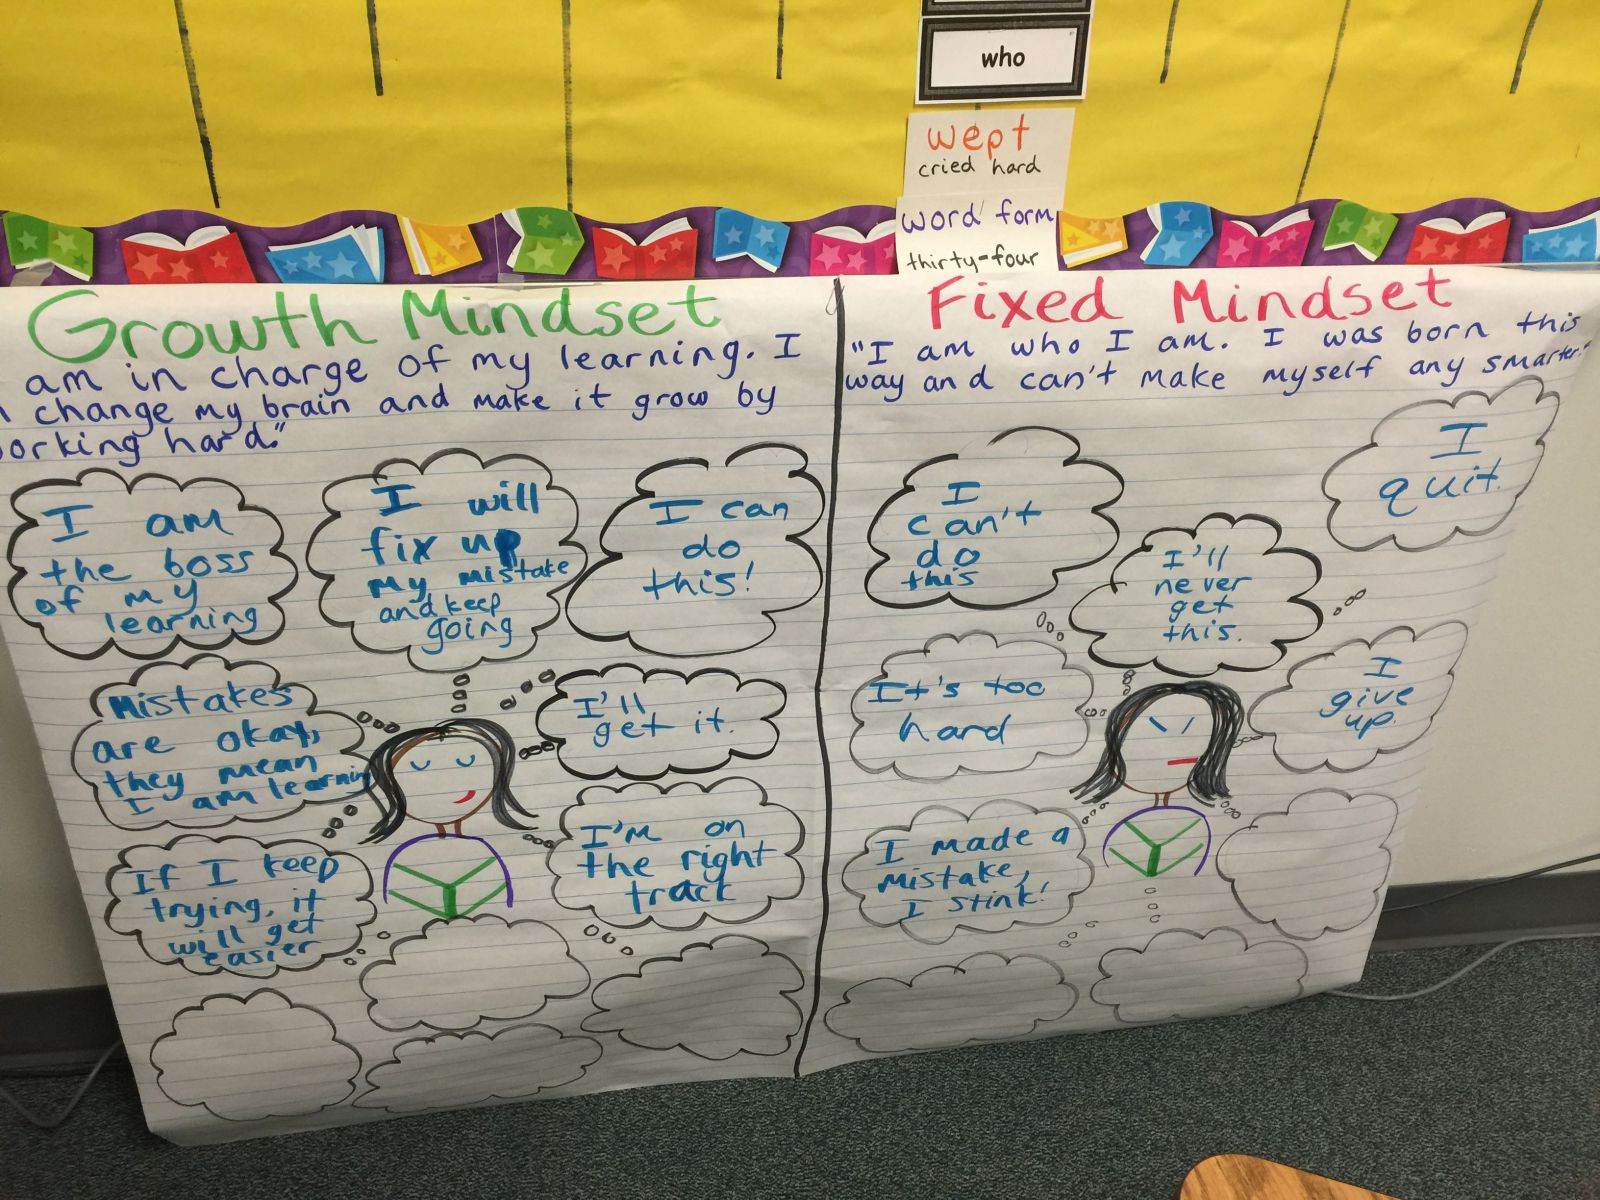 who
wept
cried hard
word form
thirty-four
Growth Mindset
am in charge of my learning. I
change my brain and make it grow by
working hard."
I am
the boss
of my
learning
I will
fix up
my mistake
and keep
going
I can
do
this!
Mistakes
are okay,
they mean
I am learning
I'll
get it.
If I keep
trying, it
will get
easier
I'm on
the right
track
Fixed Mindset
"I am who I am. I was born this
way and can't make myself any smarter."
I
can't
do
this
I'll
never
get
this.
I
quit.
It's too
hard
I
give
up.
I made a
mistake,
I stink!